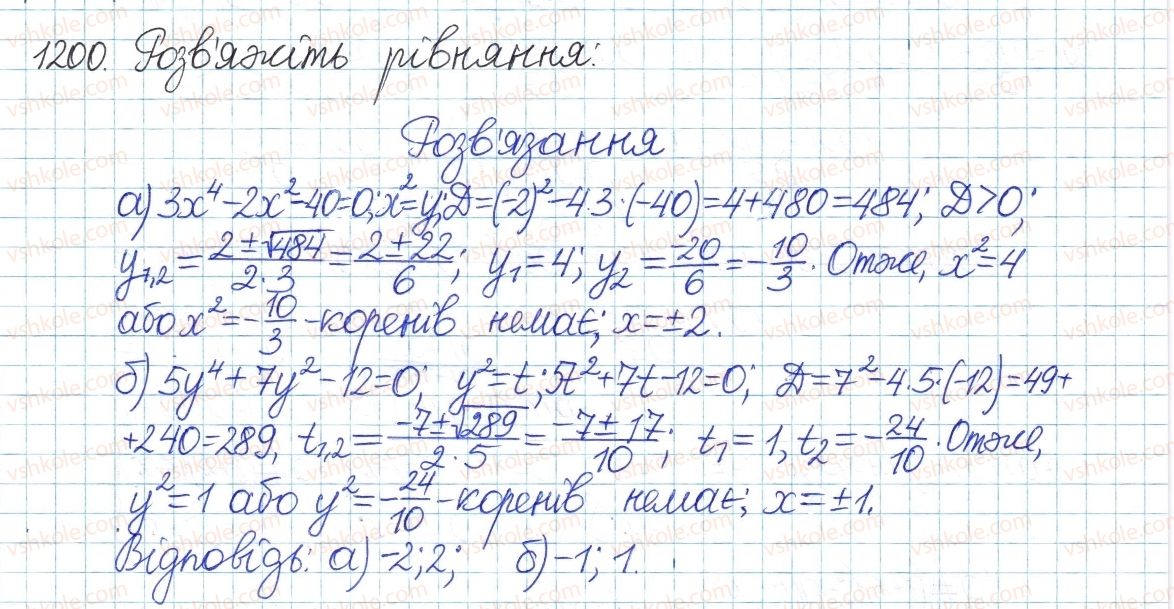 1200. Розв'яжіть рівняння:
Розв'язання
а) 3x⁴-2x²-40=0; x²=y; Д=(-2)²-4·3·(-40)=4+480=484; Д>0;
y₁,₂ = (2±√484)/(2·3) = (2±22)/6; y₁=4; y₂ = -20/6 = -10/3. Отже, x²=4
або x² = -10/3 - коренів немає; x=±2.
б) 5y⁴+7y²-12=0; y²=t; 5t²+7t-12=0; Д=7²-4·5·(-12)=49+
+240=289, t₁,₂ = (-7±√289)/(2·5) = (-7±17)/10; t₁=1, t₂=-24/10. Отже,
y²=1 або y²=-24/10 - коренів немає; x=±1.
Відповідь: а) -2; 2; б) -1; 1.